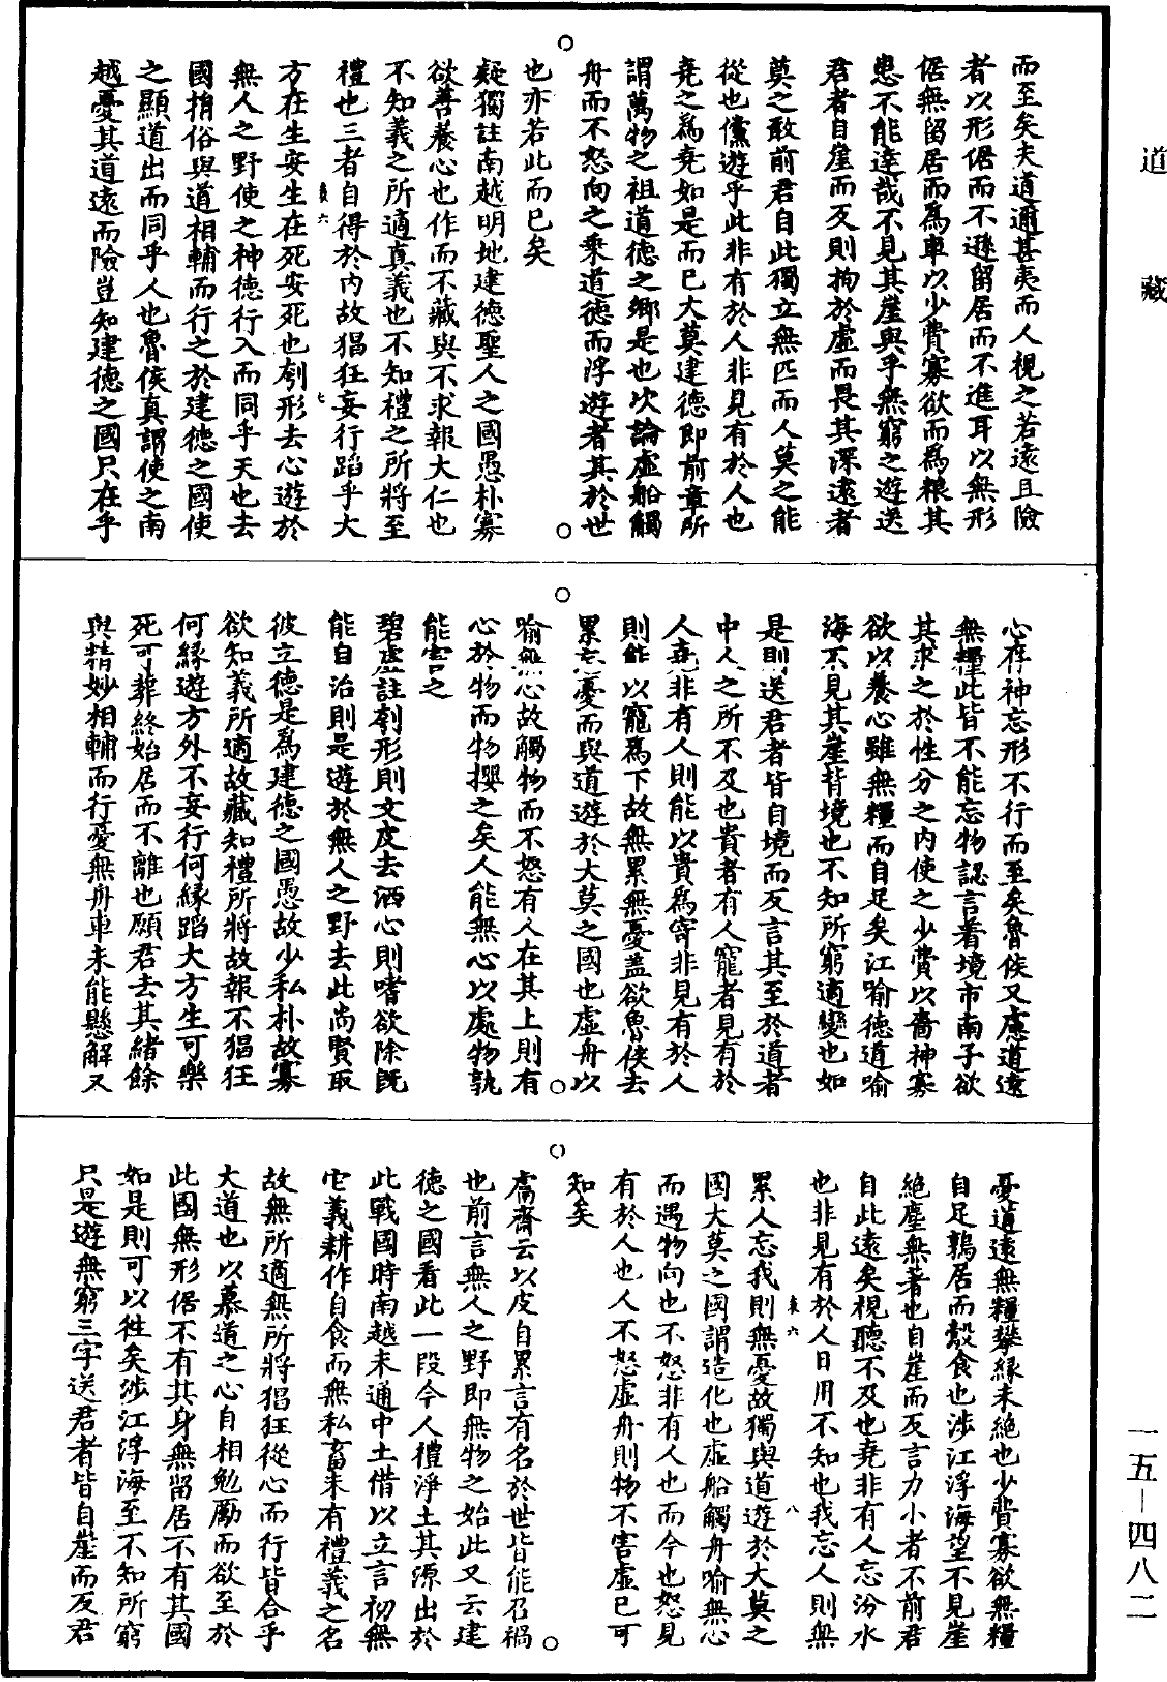 道藏
而至矣夫道通甚夷而人視之若遠且險
者以形倨而不遜留居而不進耳以無形
倨無留居而爲車以少費寡欲而爲粮其
患不能達哉不見其崖與乎無窮之遊送
君者自崖而反則拘於虛而畏其深遠者
莫之敢前君自此獨立無匹而人莫之能
從也儻遊乎此非有於人非見有於人也
堯之爲堯如是而已大莫建德即前章所
謂萬物之祖道德之鄉是也次論虛船觸
舟而不怒向之乘道德而浮遊者其於世
也亦若此而已矣
疑獨註南越明地建德聖人之國愚朴寡
欲善養心也作而不藏與不求報大仁也
不知義之所適真義也不知禮之所將至
禮也三者自得於內故猖狂妄行蹈乎大
方在生安生在死安死也刳形去心遊於
無人之野使之神德行入而同乎天也去
國捐俗與道相輔而行之於建德之國使
之顯道出而同乎人也魯侯真謂使之南
越憂其道遠而險豈知建德之國只在乎
心存神忘形不行而至矣魯侯又慮道遠
無糧此皆不能忘物認言著境市南子欲
其求之於性分之內使之少費以嗇神寡
欲以養心雖無糧而自足矣江喻德道喻
海不見其崖背境也不知所窮適變也如
是則送君者皆自境而反言其至於道者
中人之所不及也貴者有人寵者見有於
人堯非有人則能以貴爲寄非見有於人
則能以寵爲下故無累無憂蓋欲魯侯去
累忘憂而與道遊於大莫之國也虛舟以
喻無心故觸物而不怒有人在其上則有
心於物而物攖之矣人能無心以處物孰
能害之
碧虛註刳形則文皮去洒心則嗜欲除既
能自治則是遊於無人之野去此尚賢取
彼立德是爲建德之國愚故少私朴故寡
欲知義所適故藏知禮所將故報不猖狂
何緣遊方外不妄行何緣蹈大方生可樂
死可葬終始居而不離也願君去其緒餘
與精妙相輔而行憂無舟車未能懸解又
憂道遠無糧攀緣未絕也少費寡欲無糧
自足鶉居而鷇食也涉江浮海望不見崖
絕塵無著也自崖而反言力小者不前君
自此遠矣視聽不及也堯非有人忘汾水
也非見有於人日用不知也我忘人則無
累人忘我則無憂故獨與道遊於大莫之
國大莫之國謂造化也虛船觸舟喻無心
而遇物向也不怒非有人也而今也怒見
有於人也人不怒虛舟則物不害虛已可
知矣
鬳齋云以皮自累言有名於世皆能召禍
也前言無人之野即無物之始此又云建
德之國看此一段今人禮淨土其源出於
此戰國時南越未通中土借以立言初無
它義耕作自食而無私畜未有禮義之名
故無所適無所將猖狂從心而行皆合乎
大道也以慕道之心自相勉勵而欲至於
此國無形倨不有其身無留居不有其國
如是則可以往矣涉江浮海至不知所窮
只是遊無窮三字送君者皆自崖而反君
一五-四八二